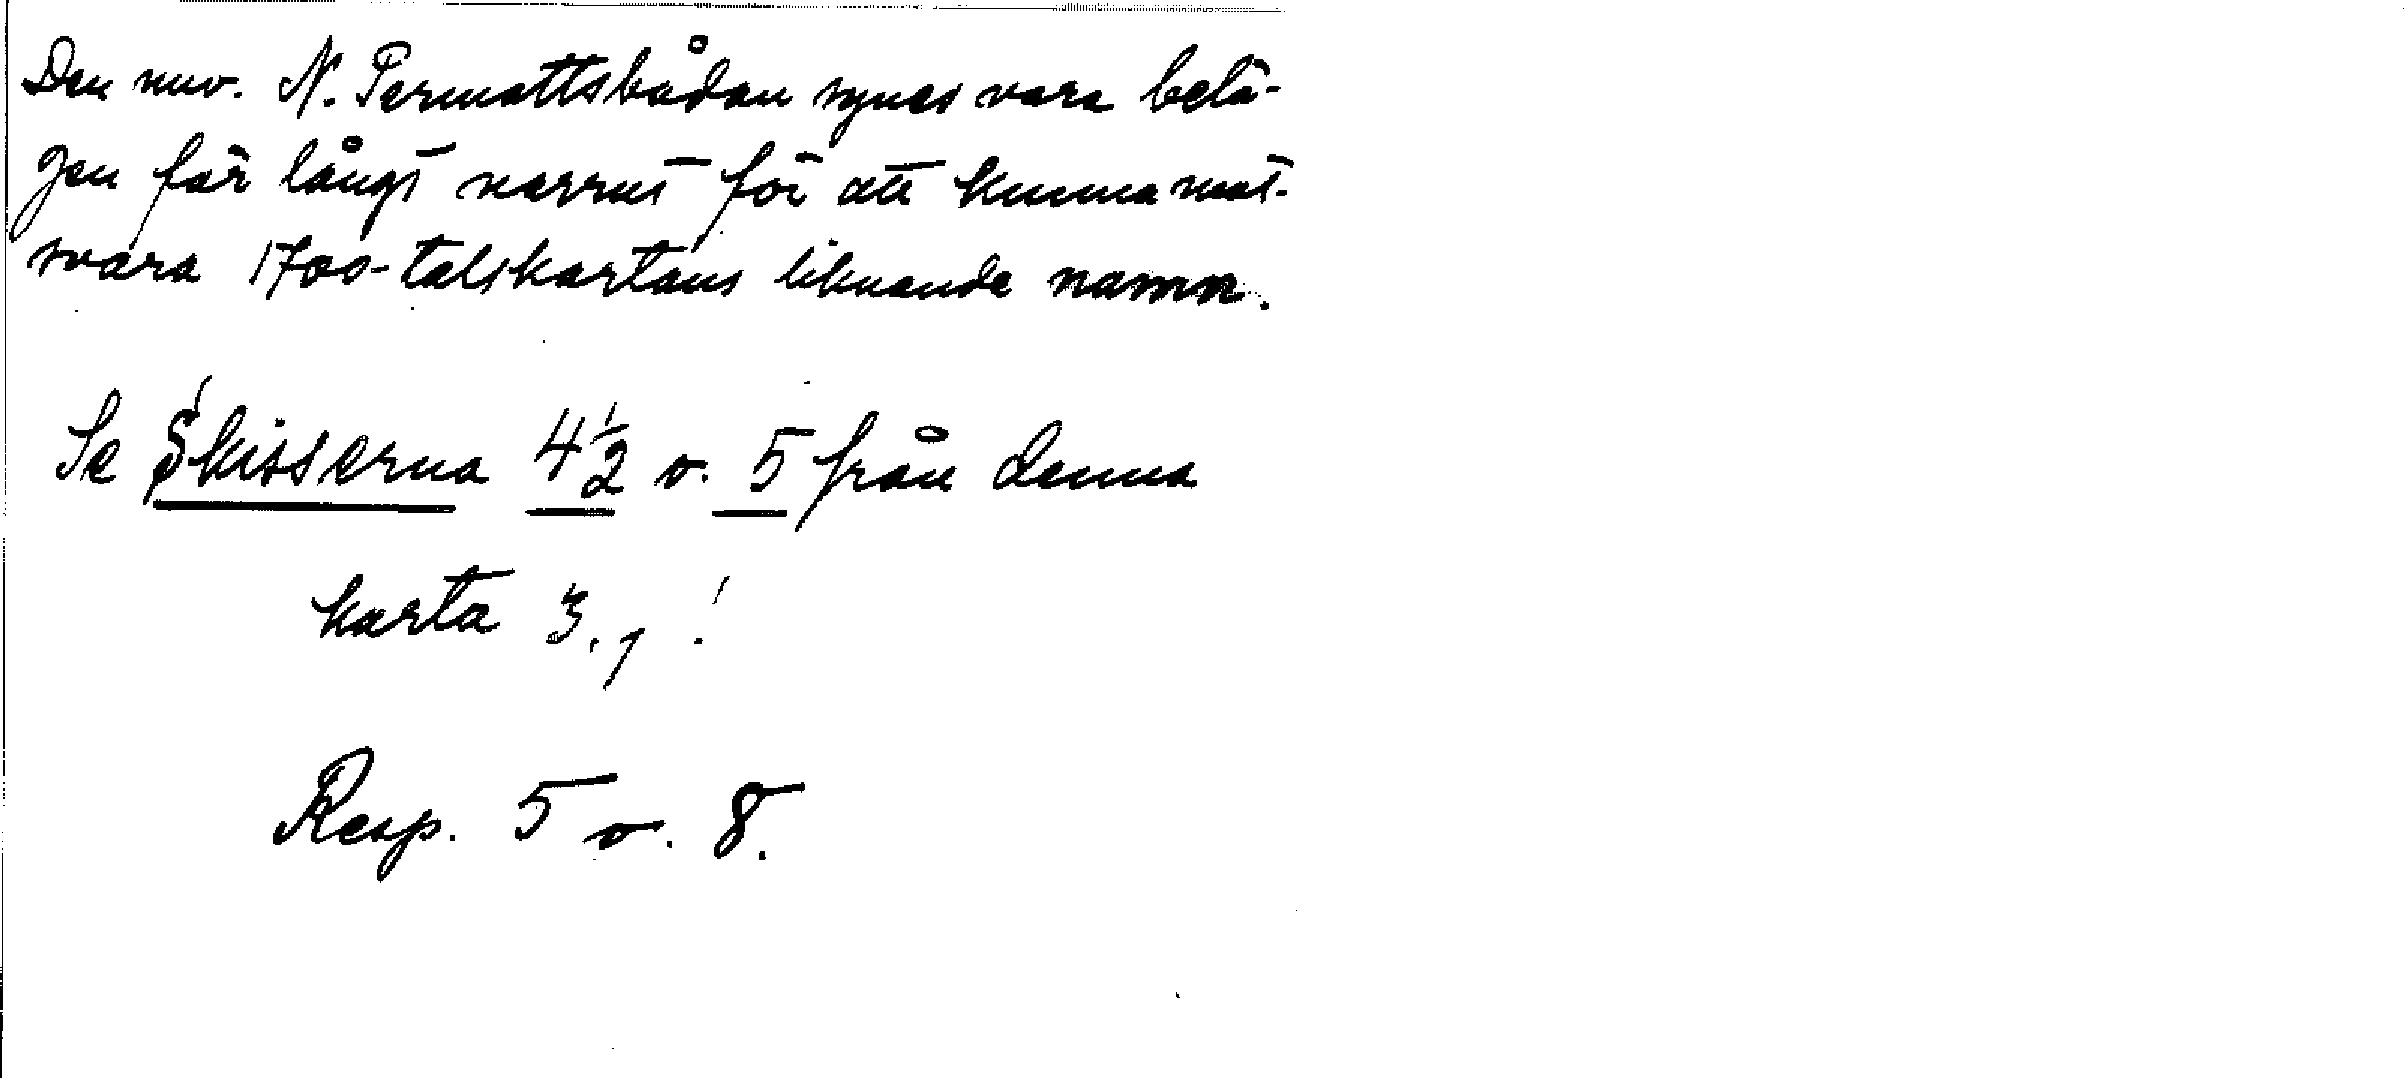 Den nuv. N. Permattsbådan synes vara belä-
gen för långt norrut för att kunna mot-
svara 1700-talskartans liknande namn.
Se Skisserna 4½ o. 5 från denna
karta 3., !
Resp. 5 o. 8.